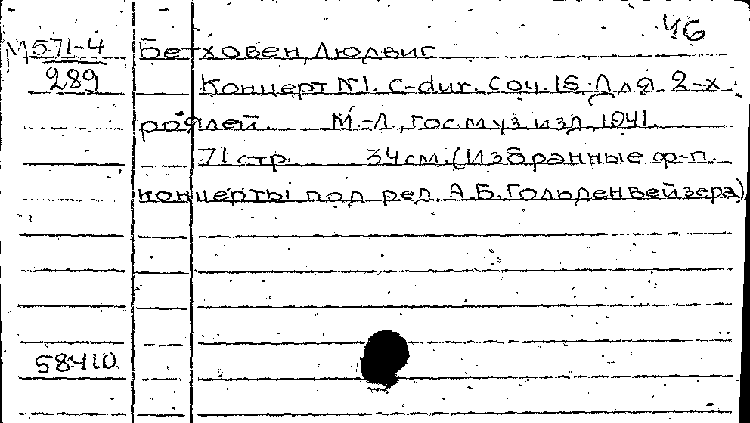 46
М571-4 Бетховен, Людвиг
289 Концерт N1. C-dur. Соч. 15. Для 2-х
роялей. М.-Л., Гос. муз. изд., 1941.
71 стр. 34 см. (Избранные ф-п.
концерты под ред. А.Б. Гольденвейзера)
58410